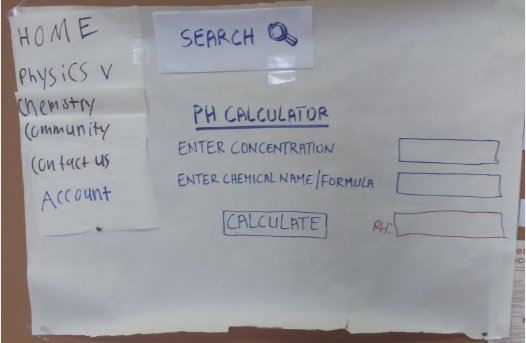 HOME
PHYSICS V
Chemistry
Community
Contact us
Account
SEARCH
PH CALCULATOR
ENTER CONCENTRATION
ENTER CHEMICAL NAME/FORMULA
CALCULATE
PH: